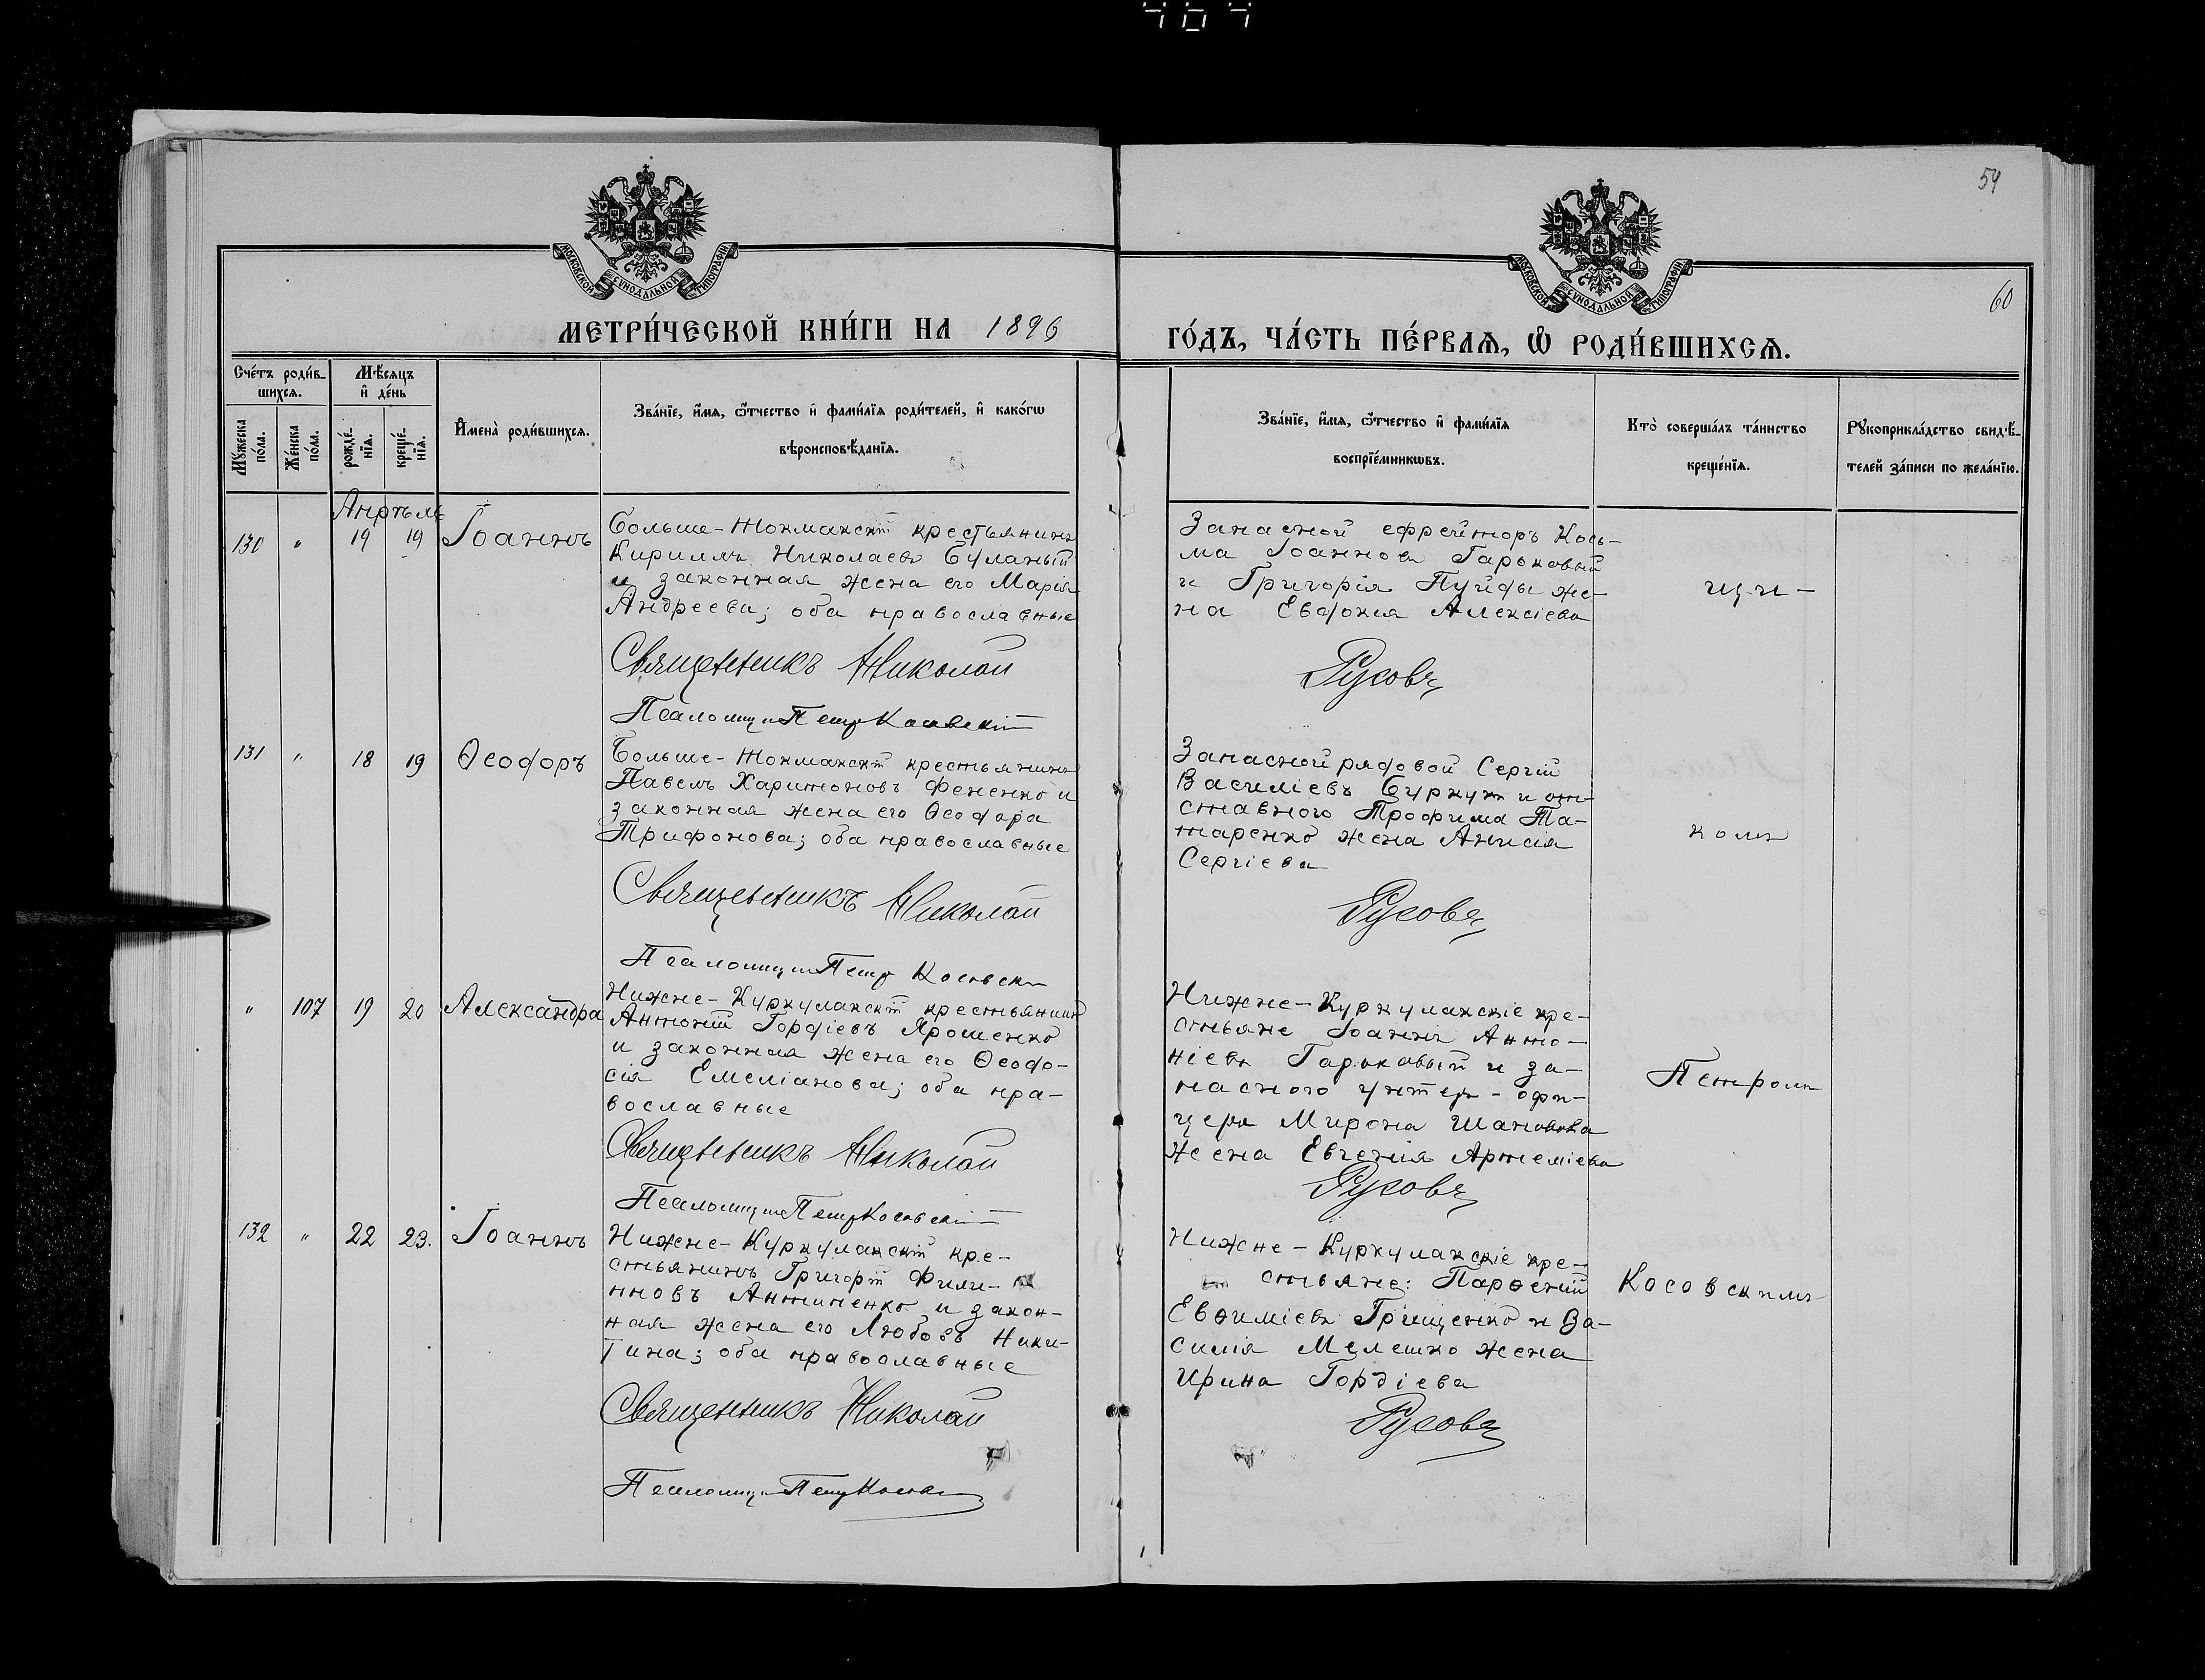 54
МОСКОВСКОЙ СУНОДАЛЬНОЙ ТИПОГРАФІИ
МОСКОВСКОЙ СУНОДАЛЬНОЙ ТИПОГРАФІИ
60
МЕТРИ́ЧЕСКОЙ КНИ́ГИ НА 1896
ГО́ДЪ, ЧА́СТЬ ПЕ́РВАѦ, Ѡ҆ РОДИ́ВШИХСѦ.
Сче́тъ роди́в-
шихсѧ.
Мѣ́сяцъ
и҆ де́нь
Му́жеска
по́ла.
Же́нска
по́ла.
рожде́-
нїѧ.
креще́-
нїѧ.
И҆мена̀ роди́вшихсѧ.
Зва́нїе, и҆́мѧ, ѻ҆́тчество и҆ фами́лїѧ роди́телей, и҆ како́гѡ
вѣроисповѣ́данїѧ.
Зва́нїе, и҆́мѧ, ѻ҆́тчество и҆ фами́лїѧ
воспрїе́мникѡвъ.
Кто̀ соверша́лъ та́инство
креще́нїѧ.
Рꙋкоприкла́дство свидѣ́-
телей за́писи по жела́нїю.
Апрѣль
130 " 19 19 Іоаннъ
Больше-Токмакскій крестьянинъ
Кириллъ Николаевъ Буланый
и законная жена его Марія
Андреева; оба православные
Священникъ Николай
Псаломщ Петр Косовскій
Запасной ефрейторъ Кось-
ма Іоанновъ Гарьковый
и Григорія Пуйды же-
на Евдокія Алексіева
Русовъ
ищи-
131 " 18 19 Ѳеодоръ
Больше-Токмакскій крестьянинъ
Павелъ Харитоновъ Фененко и
законная жена его Ѳеодора
Трифонова; оба православные
Священникъ Николай
Псаломщ Петр Косовски
Запасной рядовой Сергій
Василіевъ Буркут и от-
ставного Трофима Та-
таренко жена Анисія
Сергіева
Русовъ
комъ
" 107 19 20 Александра
Нижне-Куркулакскій крестьянинъ
Антоній Гордіевъ Ярошенко
и законная жена его Ѳеодо-
сія Емеліанова; оба пра-
вославные
Священникъ Николай
Псаломщ Петр Косовскій
Нижне-Куркулакскіе кре-
стьяне Іоаннъ Анто-
ніевъ Гарьковый и за-
пасного унтеръ-офи-
цера Мирона
жена Евгенія Артеміева
Русовъ
Петромъ
132 " 22 23. Іоаннъ
Нижне-Куркулакскій кре-
стьянинъ Григорій Фили-
пповъ Антипенко и закон-
ная жена его Любовь Ники-
тина; оба православные
Священникъ Николай
Псаломщ Петр
Нижне-Куркулакскіе кре-
стьяне: Парѳеній
Евѳиміевъ Грищенко и Ва-
силія Мелешко жена
Ирина Гордіева
Русовъ
Косовскимъ